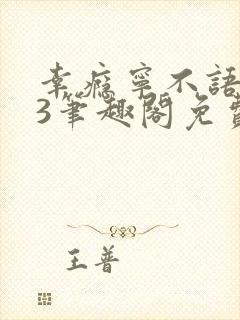 幸瘾寧不語
3笔趣閣免費
王普